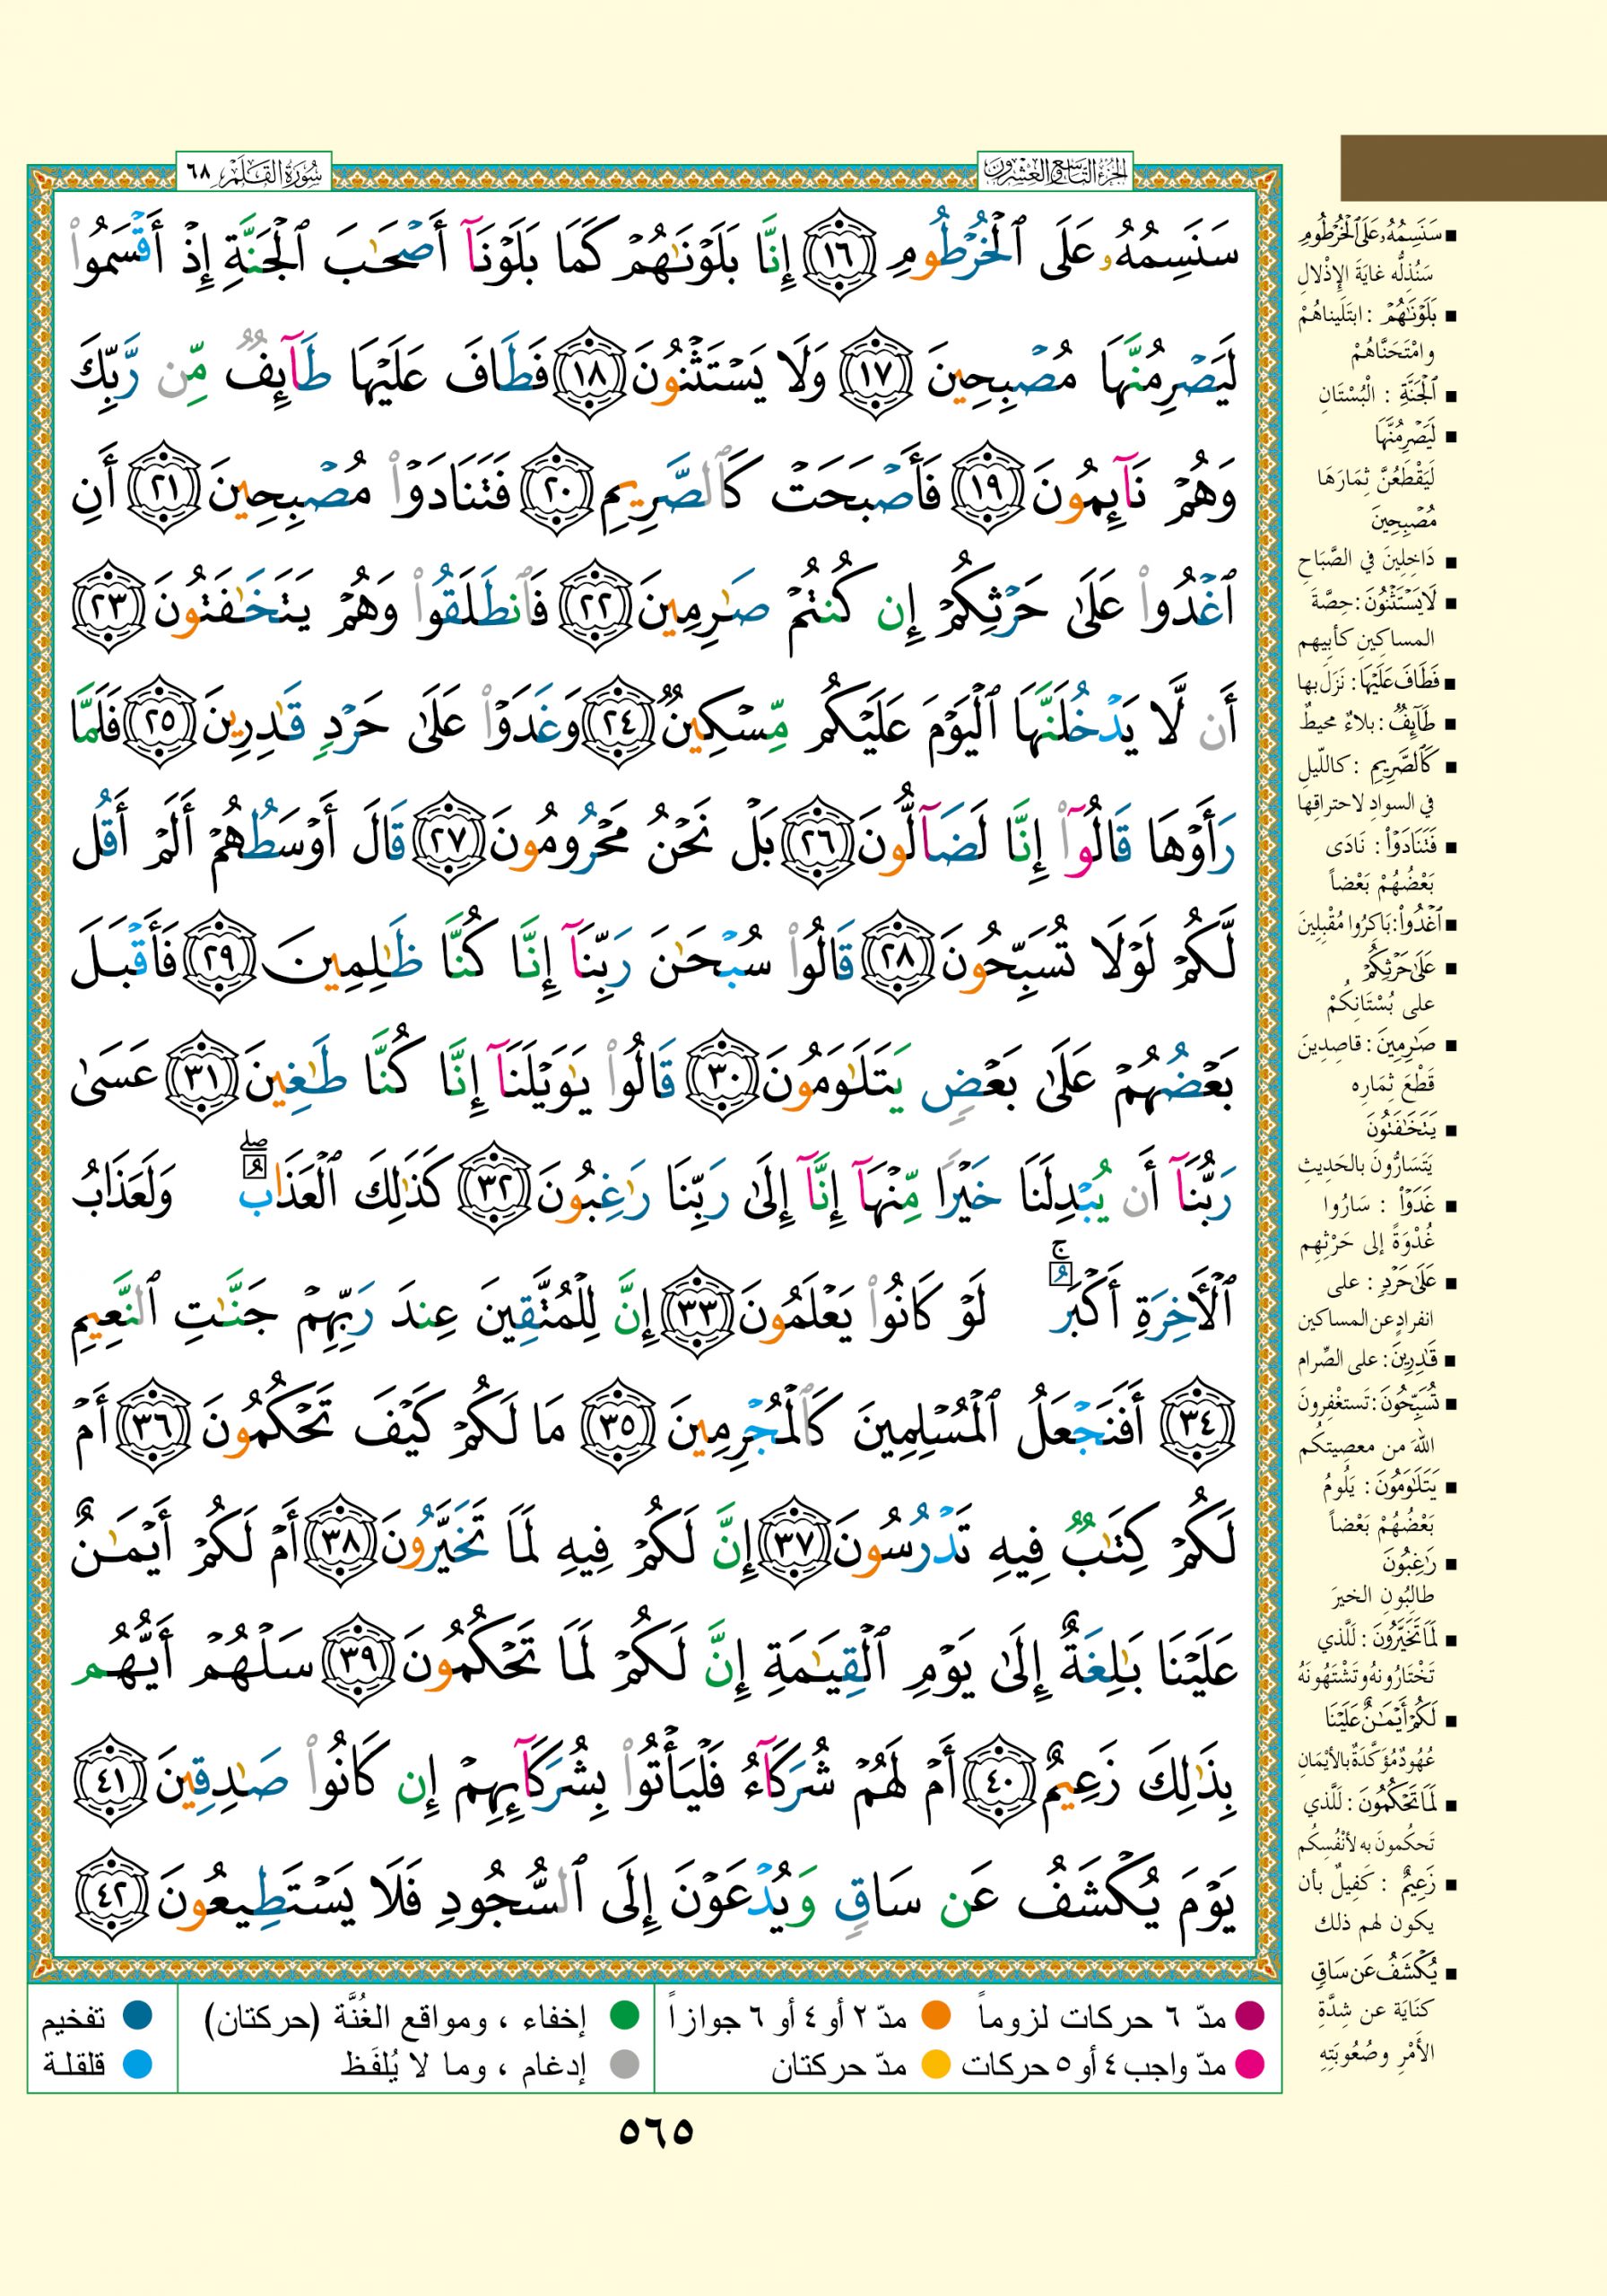 الجزء التاسع والعشرون
سُورَةُ القَلَم ٦٨
سَنَسِمُهُۥ عَلَى ٱلْخُرْطُومِ ١٦ إِنَّا بَلَوْنَٰهُمْ كَمَا بَلَوْنَآ أَصْحَٰبَ ٱلْجَنَّةِ إِذْ أَقْسَمُوا۟
لَيَصْرِمُنَّهَا مُصْبِحِينَ ١٧ وَلَا يَسْتَثْنُونَ ١٨ فَطَافَ عَلَيْهَا طَآئِفٌ مِّن رَّبِّكَ
وَهُمْ نَآئِمُونَ ١٩ فَأَصْبَحَتْ كَٱلصَّرِيمِ ٢٠ فَتَنَادَوْا۟ مُصْبِحِينَ ٢١ أَنِ
ٱغْدُوا۟ عَلَىٰ حَرْثِكُمْ إِن كُنتُمْ صَٰرِمِينَ ٢٢ فَٱنطَلَقُوا۟ وَهُمْ يَتَخَٰفَتُونَ ٢٣
أَن لَّا يَدْخُلَنَّهَا ٱلْيَوْمَ عَلَيْكُم مِّسْكِينٌ ٢٤ وَغَدَوْا۟ عَلَىٰ حَرْدٍ قَٰدِرِينَ ٢٥ فَلَمَّا
رَأَوْهَا قَالُوٓا۟ إِنَّا لَضَآلُّونَ ٢٦ بَلْ نَحْنُ مَحْرُومُونَ ٢٧ قَالَ أَوْسَطُهُمْ أَلَمْ أَقُل
لَّكُمْ لَوْلَا تُسَبِّحُونَ ٢٨ قَالُوا۟ سُبْحَٰنَ رَبِّنَآ إِنَّا كُنَّا ظَٰلِمِينَ ٢٩ فَأَقْبَلَ
بَعْضُهُمْ عَلَىٰ بَعْضٍ يَتَلَٰوَمُونَ ٣٠ قَالُوا۟ يَٰوَيْلَنَآ إِنَّا كُنَّا طَٰغِينَ ٣١ عَسَىٰ
رَبُّنَآ أَن يُبْدِلَنَا خَيْرًا مِّنْهَآ إِنَّآ إِلَىٰ رَبِّنَا رَٰغِبُونَ ٣٢ كَذَٰلِكَ ٱلْعَذَابُ ۖ وَلَعَذَابُ
ٱلْأٓخِرَةِ أَكْبَرُ ۚ لَوْ كَانُوا۟ يَعْلَمُونَ ٣٣ إِنَّ لِلْمُتَّقِينَ عِندَ رَبِّهِمْ جَنَّٰتِ ٱلنَّعِيمِ
٣٤ أَفَنَجْعَلُ ٱلْمُسْلِمِينَ كَٱلْمُجْرِمِينَ ٣٥ مَا لَكُمْ كَيْفَ تَحْكُمُونَ ٣٦ أَمْ
لَكُمْ كِتَٰبٌ فِيهِ تَدْرُسُونَ ٣٧ إِنَّ لَكُمْ فِيهِ لَمَا تَخَيَّرُونَ ٣٨ أَمْ لَكُمْ أَيْمَٰنٌ
عَلَيْنَا بَٰلِغَةٌ إِلَىٰ يَوْمِ ٱلْقِيَٰمَةِ إِنَّ لَكُمْ لَمَا تَحْكُمُونَ ٣٩ سَلْهُمْ أَيُّهُم
بِذَٰلِكَ زَعِيمٌ ٤٠ أَمْ لَهُمْ شُرَكَآءُ فَلْيَأْتُوا۟ بِشُرَكَآئِهِمْ إِن كَانُوا۟ صَٰدِقِينَ ٤١
يَوْمَ يُكْشَفُ عَن سَاقٍ وَيُدْعَوْنَ إِلَى ٱلسُّجُودِ فَلَا يَسْتَطِيعُونَ ٤٢
■ سَنَسِمُهُۥ عَلَى ٱلْخُرْطُومِ
سَنُذِلُّه غايَةَ الإِذْلالِ
■ بَلَوْنَٰهُمْ : ابتَلَيناهُمْ
وامْتَحَنَّاهُمْ
■ ٱلْجَنَّةِ : الْبُسْتَانِ
■ لَيَصْرِمُنَّهَا
لَيَقْطَعُنَّ ثِمَارَهَا
مُصْبِحِينَ
■ دَاخِلِينَ في الصَّبَاحِ
■ لَا يَسْتَثْنُونَ : حِصَّةَ
المساكِينِ كأبِيهم
■ فَطَافَ عَلَيْهَا : نَزَلَ بها
■ طَآئِفٌ : بلاءٌ محيطٌ
■ كَٱلصَّرِيمِ : كاللّيلِ
في السوادِ لاحتراقِها
■ فَتَنَادَوْا۟ : نَادَى
بَعْضُهُمْ بَعْضاً
■ ٱغْدُوا۟ : بَاكِرُوا مُقْبِلِينَ
■ عَلَىٰ حَرْثِكُمْ
على بُسْتَانِكُمْ
■ صَٰرِمِينَ : قاصِدِينَ
قَطْعَ ثِمَارِه
■ يَتَخَٰفَتُونَ
يَتَسَارُّونَ بالحَدِيثِ
■ غَدَوْا۟ : سَارُوا
غُدْوَةً إلى حَرْثِهِم
■ عَلَىٰ حَرْدٍ : على
انفرادٍ عن المساكين
■ قَٰدِرِينَ : على الصِّرام
■ تُسَبِّحُونَ : تَستغْفِرونَ
اللهَ من معصِيتِكُم
■ يَتَلَٰوَمُونَ : يَلُومُ
بَعْضُهُمْ بَعْضاً
■ رَٰغِبُونَ
طالِبُون الخيرَ
■ لَمَا تَخَيَّرُونَ : لَلَّذي
تَخْتَارُونهُ وتَشْتَهُونَهُ
■ لَكُمْ أَيْمَٰنٌ عَلَيْنَا
عُهُودٌ مُؤَكَّدَةٌ بالأيْمَانِ
■ لَمَا تَحْكُمُونَ : لَلَّذي
تَحكُمونَ به لأنْفُسِكُم
■ زَعِيمٌ : كَفِيلٌ بأن
يكون لهم ذلك
■ يُكْشَفُ عَن سَاقٍ
كنَايَة عن شِدَّةِ
الأَمْرِ وصُعُوبَتِهِ
مدّ ٦ حركات لزوماً مدّ ٢ أو ٤ أو ٦ جوازاً إخفاء ، ومواقع الغُنَّة (حركتان) تفخيم
مدّ واجب ٤ أو ٥ حركات مدّ حركتان إدغام ، وما لا يُلفَظ قلقلة
٥٦٥